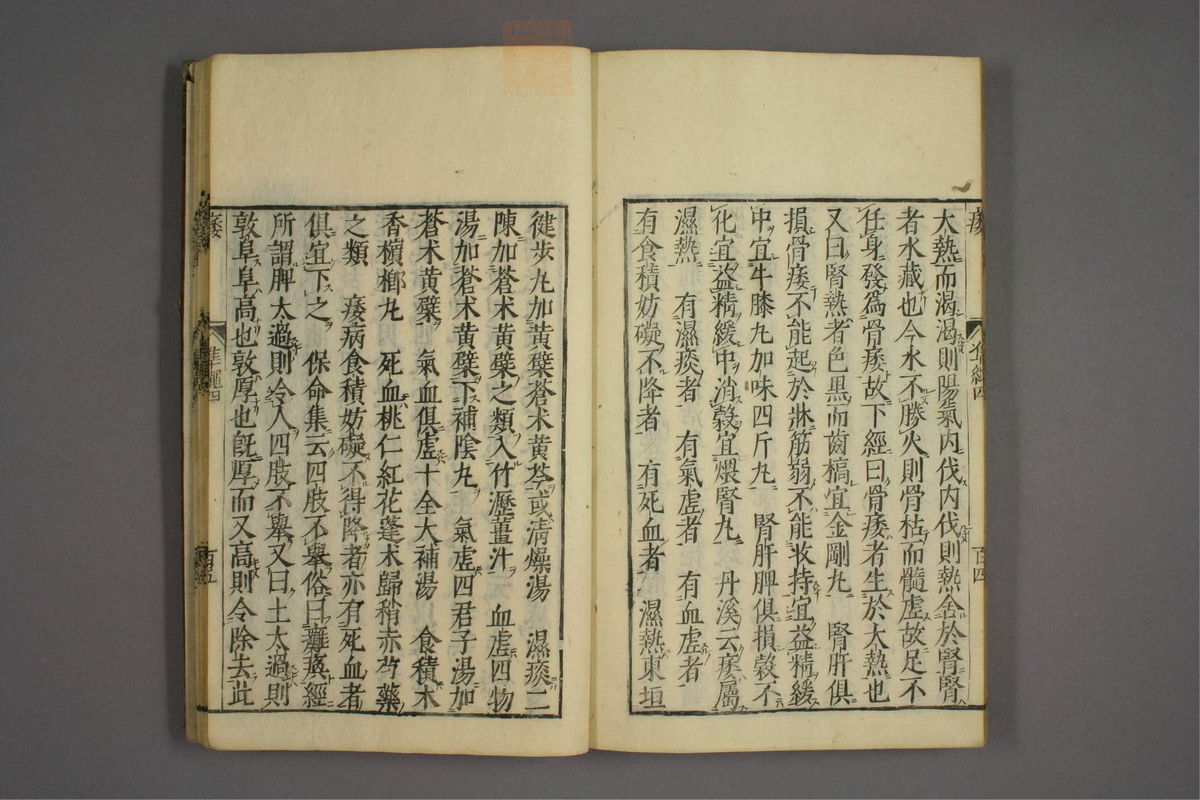 痿
百四
大熱而渴渴則陽氣內伐内伐則熱舍於腎腎
者水藏也今水不勝火則骨枯而髓虛故足不
任身發爲骨痿故下經曰骨痿者生於大熱也
又曰腎熱者色黑而齒槁宜金剛丸　腎肝俱
損骨痿不能起於牀筋弱不能收持宜益精緩
中宜牛膝丸加味四斤丸　腎肝脾俱損穀不
化宜益精緩中消穀宜煨腎丸　丹溪云痿屬
濕熱　有濕痰者　有氣虛者　有血虛者
有食積妨礙不降者　有死血者　濕熱東垣
健步丸加黃檗蒼朮黃芩或清燥湯　濕痰二
陳加蒼朮黃檗之類入竹瀝薑汁　血虛四物
湯加蒼朮黃檗下補陰丸　氣虛四君子湯加
蒼朮黃檗　氣血俱虛十全大補湯　食積木
香檳榔丸　死血桃仁紅花蓬朮歸稍赤芍藥
之類　痿病食積妨礙不得降者亦有死血者
俱宜下之　保命集云四肢不舉俗曰癱瘓經
所謂脾太過則令人四肢不舉又曰土太過則
敦阜阜高也敦厚也旣厚而又高則令除去此
痿
百五